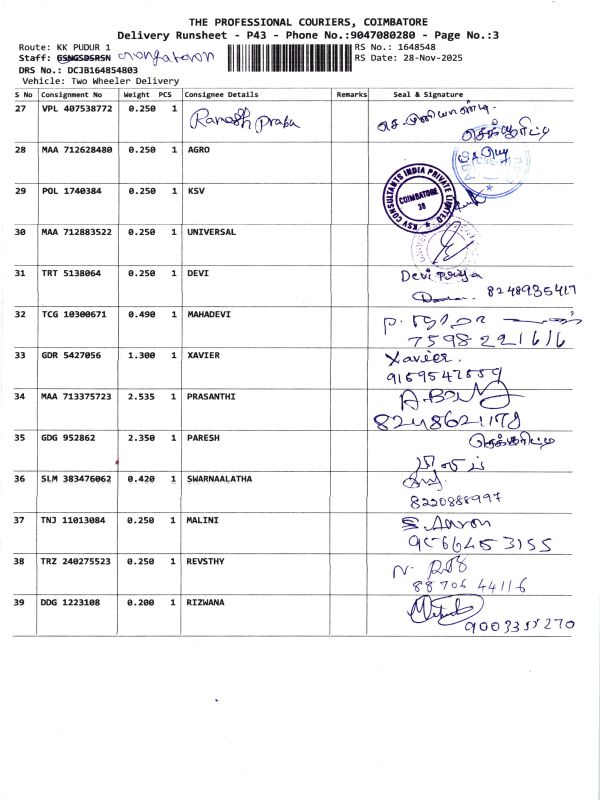 THE PROFESSIONAL COURIERS, COIMBATORE
Delivery Runsheet - P43 - Phone No.:9047080280 - Page No.:3
Route: KK PUDUR 1 RS No.: 1648548
Staff: GSNGSDSRSN RS Date: 28-Nov-2025
DRS No.: DCJB164854803
Vehicle: Two Wheeler Delivery
S No Consignment No Weight PCS Consignee Details Remarks Seal & Signature
27 VPL 407538772 0.250 1 Ramesh Prabu
செக்யூரிட்டி
28 MAA 712628480 0.250 1 AGRO
29 POL 1740384 0.250 1 KSV
KSV CONSULTANTS INDIA PRIVATE LIMITED
COIMBATORE
38
30 MAA 712883522 0.250 1 UNIVERSAL
31 TRT 5138064 0.250 1 DEVI Devi priya
8248935417
32 TCG 10300671 0.490 1 MAHADEVI
7598221616
33 GDR 5427056 1.300 1 XAVIER Xavier.
34 MAA 713375723 2.535 1 PRASANTHI
35 GDG 952862 2.350 1 PARESH செக்யூரிட்டி
36 SLM 383476062 0.420 1 SWARNAALATHA
8220888997
37 TNJ 11013084 0.250 1 MALINI S. Aaron
38 TRZ 240275523 0.250 1 REVSTHY
88706 44116
39 DDG 1223108 0.200 1 RIZWANA